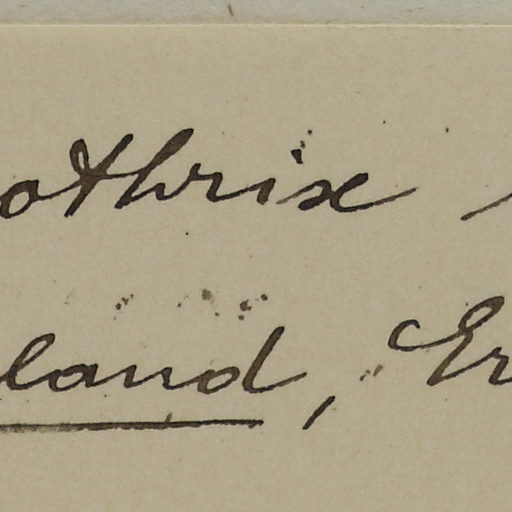 othrix
land, Er